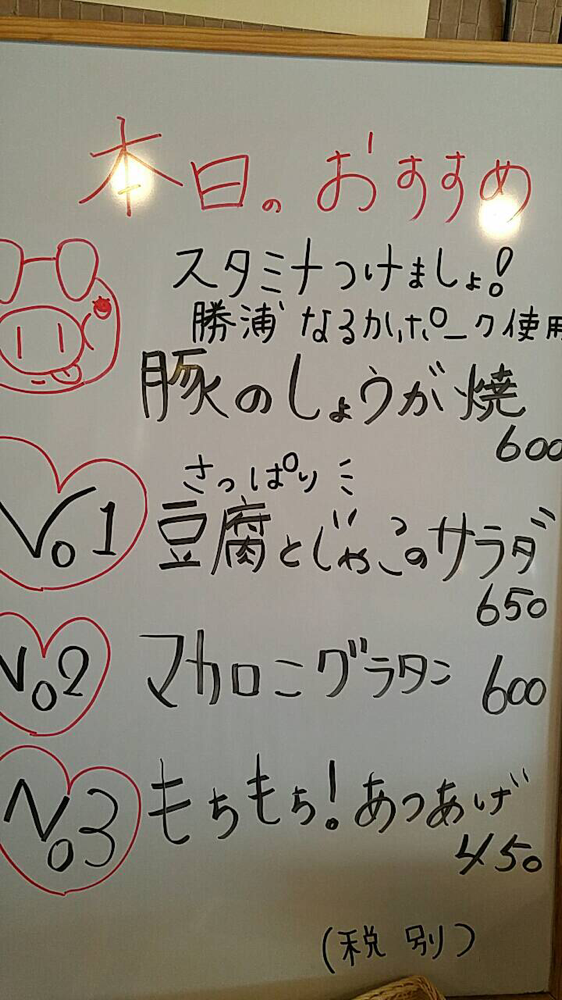 本日のおすすめ
スタミナつけましょ!
勝浦なるかポーク使用
豚のしょうが焼
600
さっぱり
No1 豆腐とじゃこのサラダ
650
No2 マカロニグラタン 600
No3 もちもち!あつあげ
450
(税別)